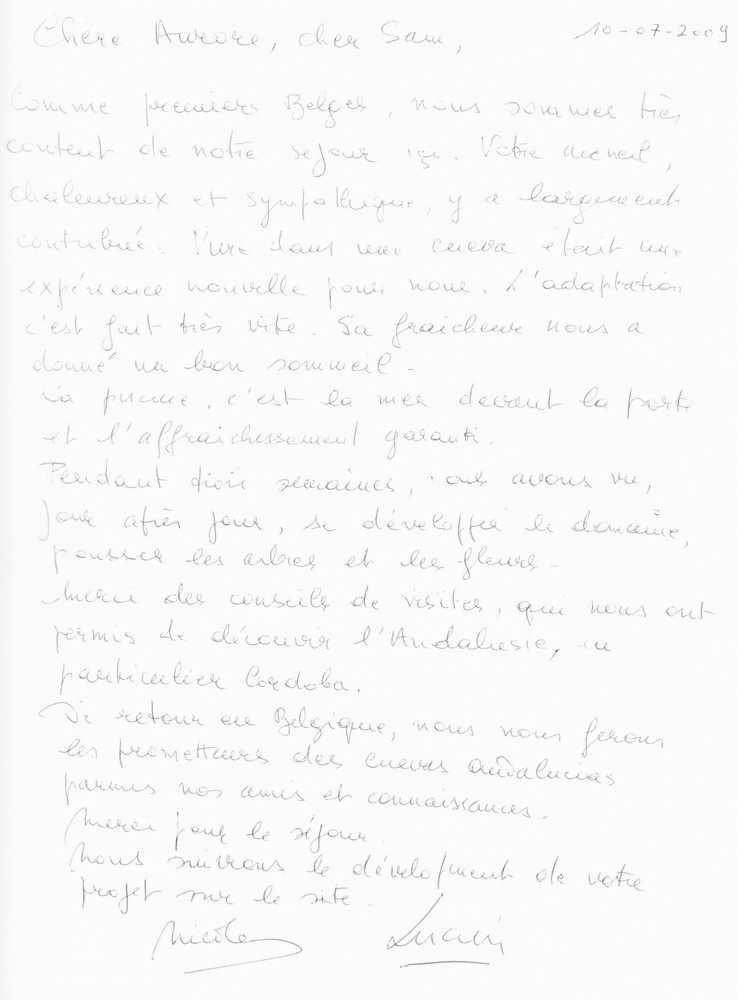 Chère Aurore, cher Sam, 10-07-2009
Comme premiers Belges, nous sommes très
content de notre séjour içi. Votre accueil,
chaleureux et sympathique, y a largement
contribué. Vivre dans une cueva était une
expérience nouvelle pour nous. L'adaptation
c'est fait très vite. Sa fraicheur nous a
donné un bon sommeil.
La piscine, c'est la mer devant la porte
et l'affraichissement garanti.
Pendant trois semaines, nous avons vu,
jour après jour, se développer le domaine,
pousser les arbres et les fleurs.
Merci des conseils de visites, qui nous ont
permis de découvrir l'Andalusie, en
particulier Cordoba.
De retour en Belgique, nous nous ferons
les prometteurs des cuevas andalucias
parmis nos amis et connaissances.
Merci pour le séjour.
Nous suivrons le dévelopment de votre
projet sur le site.
Nicole Lucien